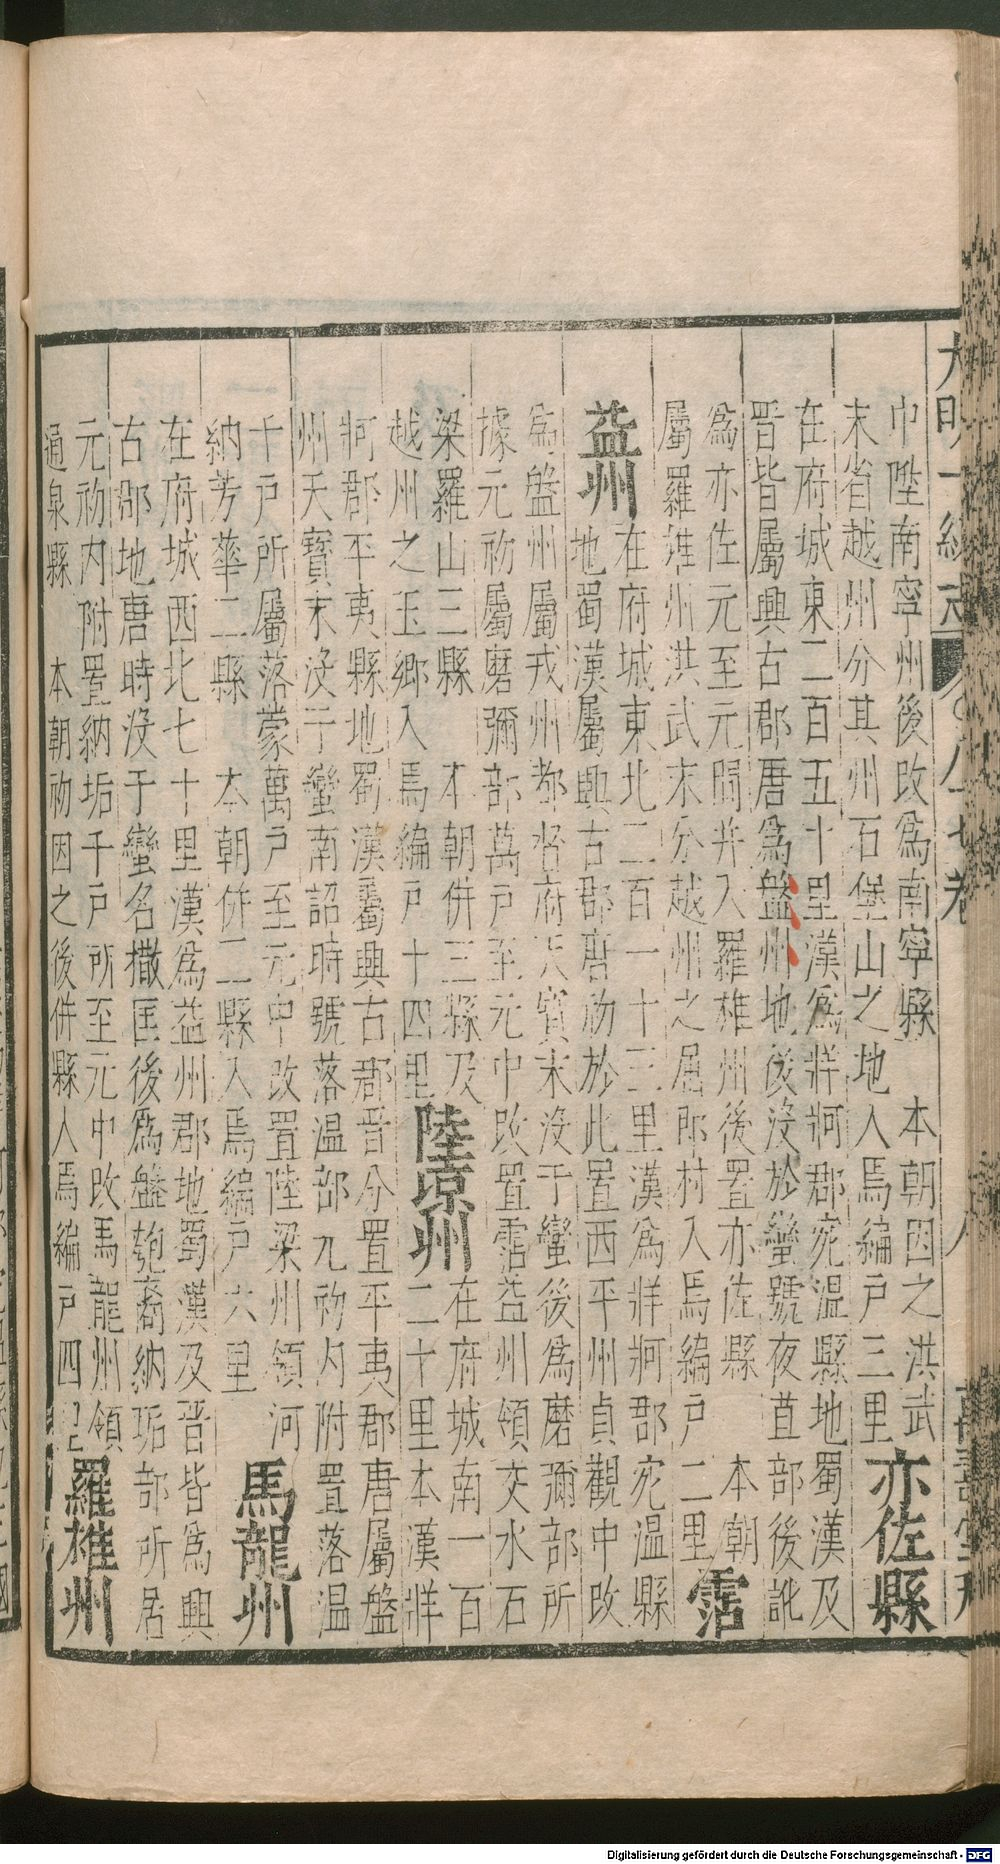 大明一統志 八十七卷 八 萬壽堂刊
中陞南寧州後改爲南寧縣 本朝因之洪武
末省越州分其州石堡山之地入焉編戶三里 亦佐縣
在府城東二百五十里漢爲牂牁郡宛溫縣地蜀漢及
晋皆屬興古郡唐爲盤州地後沒於蠻號夜苴部後訛
爲亦佐元至元間并入羅雄州後置亦佐縣 本朝
屬羅雄州洪武末分越州之居郎村入焉編戶二里 霑
益州 在府城東北二百一十三里漢爲牂牁郡宛溫縣
地蜀漢屬興古郡唐初於此置西平州貞觀中改
爲盤州屬戎州都督府天寶末沒于蠻後爲磨彌部所
據元初屬磨彌部萬戶至元中改置霑益州領交水石
梁羅山三縣 本朝併三縣及
越州之玉鄉入焉編戶十四里 陸凉州 在府城南一百
二十里本漢牂
牁郡平夷縣地蜀漢屬興古郡晋分置平夷郡唐屬盤
州天寶末沒于蠻南詔時號落溫部元初內附置落溫
千戶所屬落蒙萬戶至元中改置陸梁州領河
納芳華二縣 本朝併二縣入焉編戶六里 馬龍州
在府城西北七十里漢爲益州郡地蜀漢及晋皆爲興
古郡地唐時沒于蠻名撒匡後爲盤瓠裔納垢部所居
元初內附置納垢千戶所至元中改馬龍州領
通泉縣 本朝初因之後併縣入焉編戶四里 羅雄州
Digitalisierung gefördert durch die Deutsche Forschungsgemeinschaft - DFG